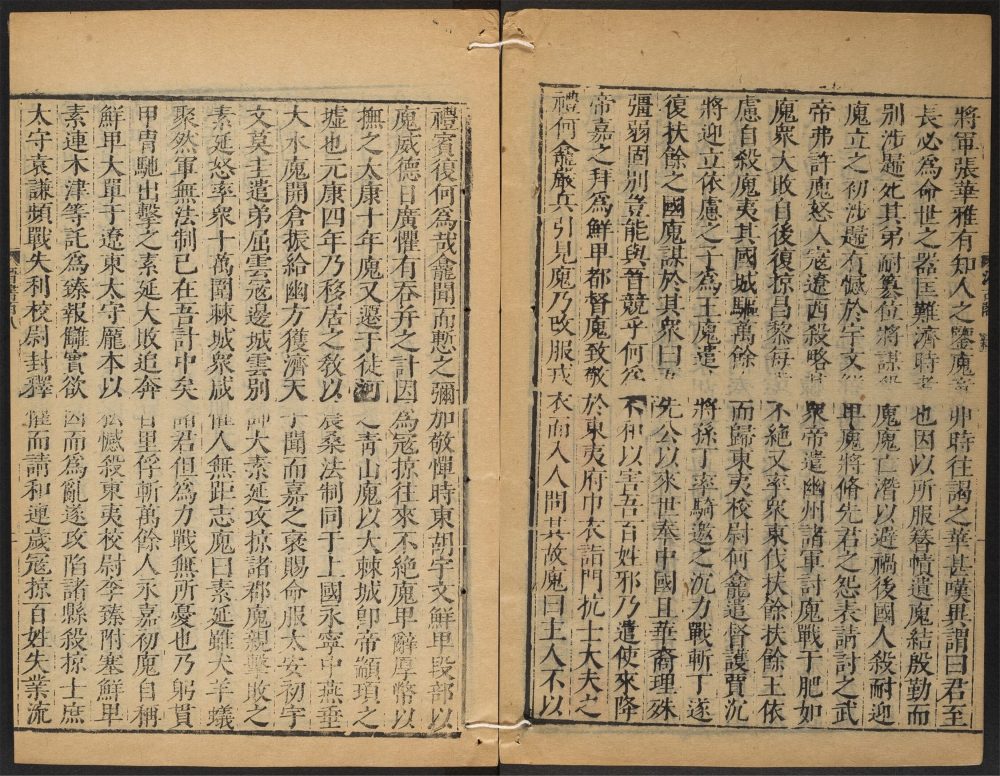 將軍張華雅有知人之鑒廆童丱時往謁之華甚嘆異謂曰君至
長必爲命世之器匡難濟時者也因以所服簪幘遺廆結殷勤而
別涉歸死其弟耐篡位將謀殺廆廆亡潛以避禍後國人殺耐迎
廆立之初涉歸有憾於宇文鮮卑廆將脩先君之怨表請討之武
帝弗許廆怒入寇遼西殺略甚衆帝遣幽州諸軍討廆戰于肥如
廆衆大敗自後復掠昌黎每不絕又率衆東伐扶餘扶餘王依
慮自殺廆夷其國城驅萬餘而歸東夷校尉何龕遣督護賈沉
將迎立依慮之子爲王廆遣將孫丁率騎邀之沉力戰斬丁遂
復扶餘之國廆謀於其衆曰吾先公以來世奉中國且華裔理殊
彊弱固別豈能與晉競乎何爲不和以害吾百姓邪乃遣使來降
帝嘉之拜爲鮮卑都督廆致敬於東夷府巾衣詣門抗士大夫之
禮何龕嚴兵引見廆乃改服戎衣而入人問其故廆曰主人不以
禮賓復何爲哉龕聞而慙之彌加敬憚時東胡宇文鮮卑段部以
廆威德日廣懼有吞并之計因爲寇掠往來不絕廆卑辭厚幣以
撫之太康十年廆又遷于徒河之青山廆以大棘城卽帝顓頊之
墟也元康四年乃移居之敎以農桑法制同于上國永寧中燕垂
大水廆開倉振給幽方獲濟天子聞而嘉之褒賜命服太安初宇
文莫主遣弟屈雲寇邊城雲別帥大素延攻掠諸郡廆親擊敗之
素延怒率衆十萬圍棘城衆咸懼人無距志廆曰素延雖犬羊蟻
聚然軍無法制已在吾計中矣諸君但爲力戰無所憂也乃躬貫
甲冑馳出擊之素延大敗追奔百里俘斬萬餘人永嘉初廆自稱
鮮卑大單于遼東太守龐本以私憾殺東夷校尉李臻附塞鮮卑
素連木津等託爲臻報讎實欲因而爲亂遂攻陷諸縣殺掠士庶
太守袁謙頻戰失利校尉封釋懼而請和連歲寇掠百姓失業流